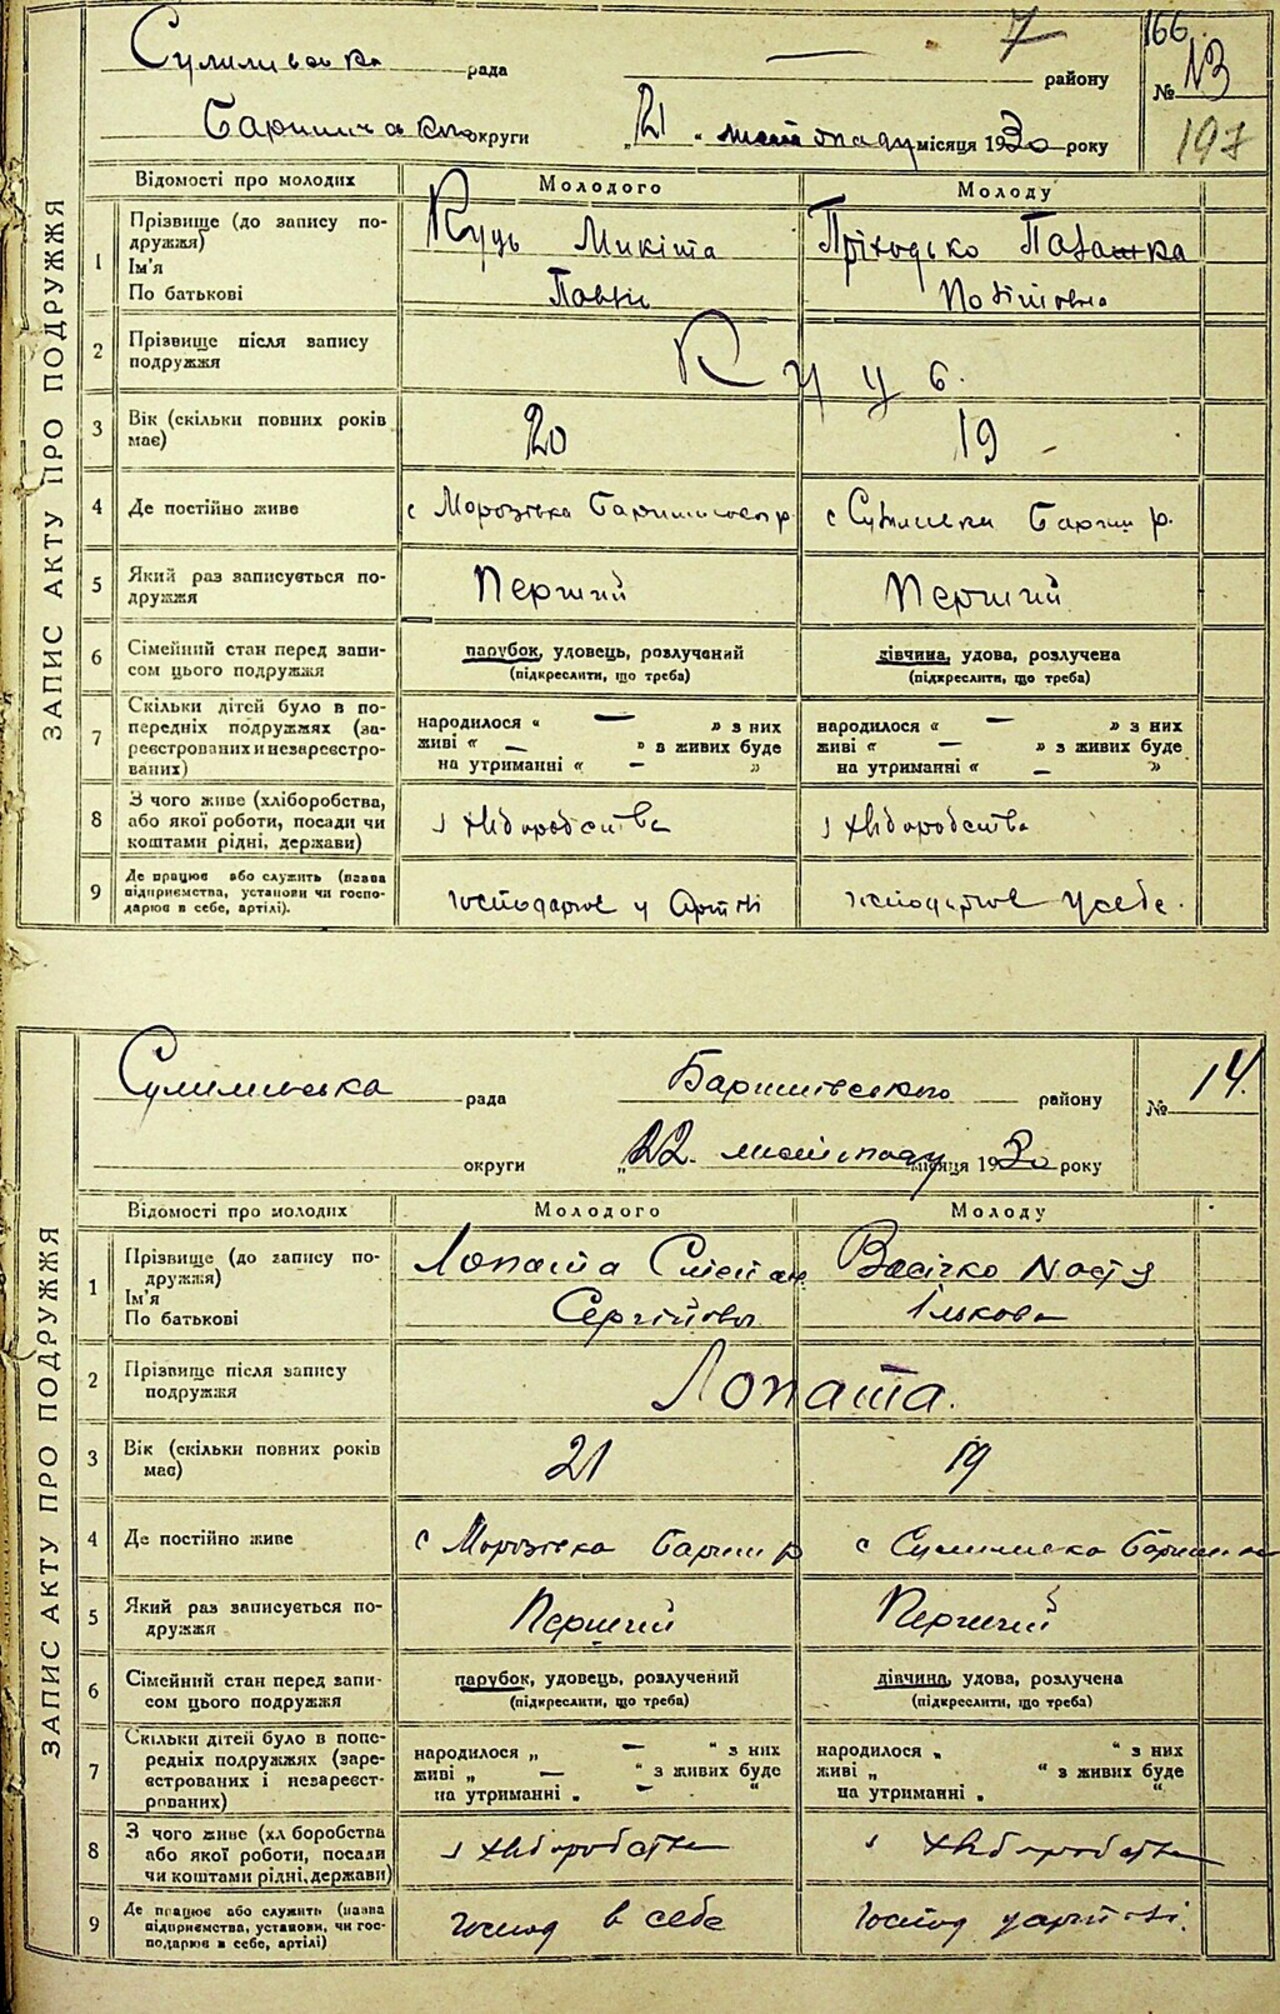 166.
7
Сулимивська рада — району № 13
округи „21 " листопаду місяця 1930 року
197
ЗАПИС АКТУ ПРО ПОДРУЖЖЯ
Відомості про молодих Молодого Молоду
1 Прізвище (до запису по-
дружжя)
Ім'я
По батькові
Куць Микіта Пріходько
2 Прізвище після запису
подружжя
Куць.
3 Вік (скільки повних років
має)
20 19
4 Де постійно живе с Морозівка р с р.
5 Який раз записується по-
дружжя
Перший Перший
6 Сімейний стан перед запи-
сом цього подружжя
парубок, удовець, розлучений дівчина, удова, розлучена
(підкреслити, що треба) (підкреслити, що треба)
7 Скільки дітей було в по-
передніх подружжях (за-
реєстрованих и незареєстро-
ваних)
народилося « — » з них народилося « — » з них
живі « — » в живих буде живі « — » з живих буде
на утриманні « — » на утриманні « — »
8 З чого живе (хліборобства,
або якої роботи, посади чи
коштами рідні, держави)
з хліборобства з хліборобства
9 Де працює або служить (назва
підприємства, установи чи госпо-
дарює в себе, артілі).
господарює у Артілі господарює у себе.
Сулимивська рада Баришівського району № 14.
округи „22. листопаду місяця 1930 року
ЗАПИС АКТУ ПРО ПОДРУЖЖЯ
Відомості про молодих Молодого Молоду
1 Прізвище (до запису по-
дружжя)
Ім'я
По батькові
Лопата Степан Васічко Настя
Сергійович Ількова
2 Прізвище після запису
подружжя
Лопата.
3 Вік (скільки повних років
має)
21 19
4 Де постійно живе с Морозівка Бариш р с Сулимівка
5 Який раз записується по-
дружжя
Перший Перший
6 Сімейний стан перед запи-
сом цього подружжя
парубок, удовець, розлучений дівчина, удова, розлучена
(підкреслити, що треба) (підкреслити, що треба)
7 Скільки дітей було в попе-
редніх подружжях (заре-
єстрованих і незареєст-
рованих)
народилося „ — " з них народилося „ " з них
живі „ — " з живих буде живі „ " з живих буде
на утриманні „ — " на утриманні „ "
8 З чого живе (хл боробства
або якої роботи, посади
чи коштами рідні, держави)
з хліборобства з хліборобства
9 Де працює або служить (назва
підприємства, установи, чи гос-
подарює в себе, артілі)
господ в себе господ у артілі.